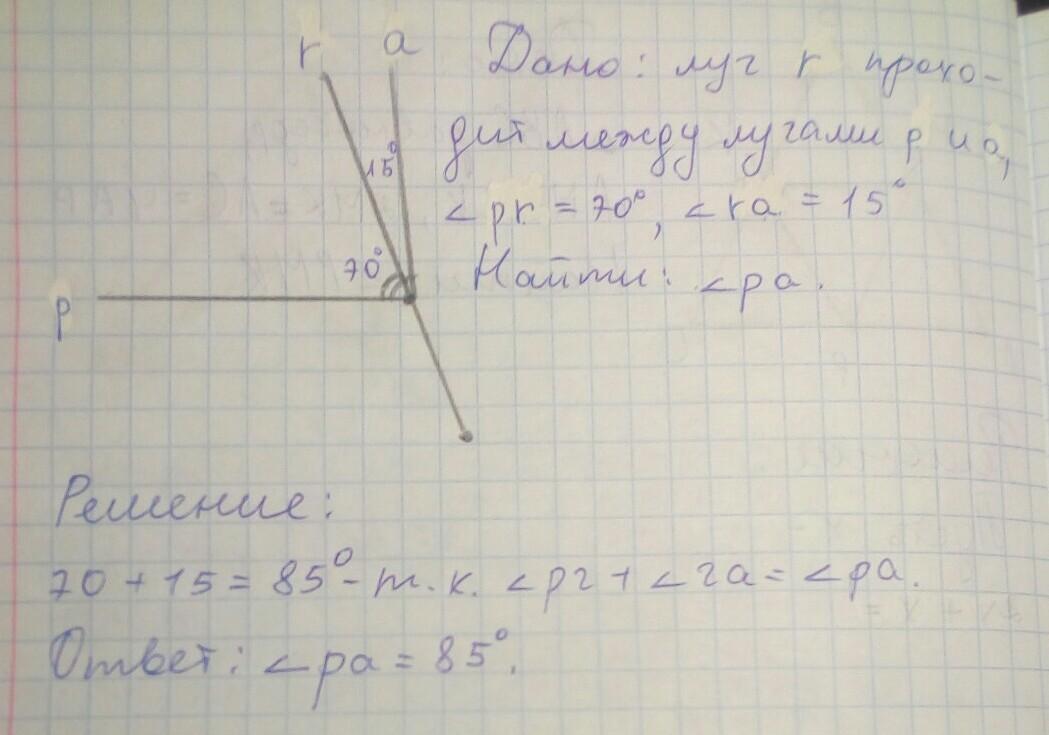 r a
Дано: луч r прохо-
дит между лучами p и a,
15°
∠pr = 70°, ∠ra = 15°
70°
Найти: ∠pa.
p
Решение:
70 + 15 = 85° - т. к. ∠pr + ∠ra = ∠pa.
Ответ: ∠pa = 85°.